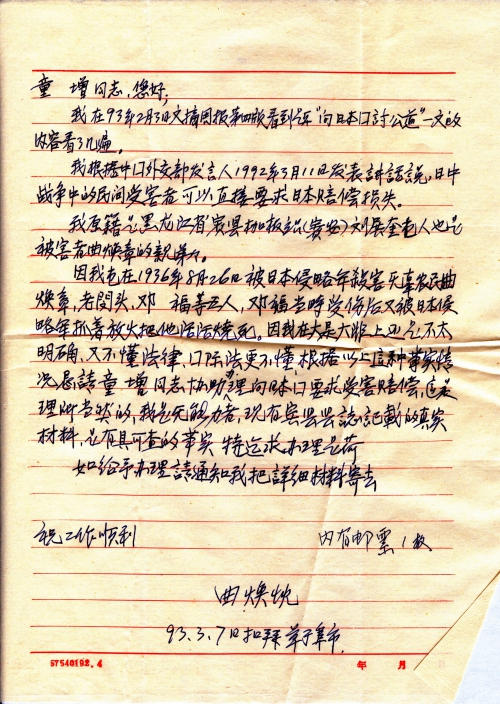 童 增同志，您好；
我在93年2月3日文摘周报第四版看到"向日本口討公道"一文的
内容看了几遍。
我根据中口外交部发言人1992年3月11日发表訲話説，日中
战争中的民间受害者可以直接要求日本赔偿损失。
我原籍是黑龙江省賓县 刘 老人也是
被害者曲焕章的親弟。
因我 在1936年8月26日被日本侵略军殺害 曲
焕章，老 头，邓 福等五人，邓福当時受伤后又被日本侵
略军抓着放火把他活活烧死。因我在大是大非上还是不太
明确，又不懂法律，口际法更不懂根据以上这种事实情
况恳請童 增同志协助 理向日本口要求受害赔偿，這是
理所当然的，我是无能力者，现有賓县县誌記載的真实
材料，是有具可查的事实 特 求办理是荷
如给予办理請通知我把詳细材料寄去
祝工作順利 内有邮票1枚
曲焕
93.3.7日
57540192.4 年 月